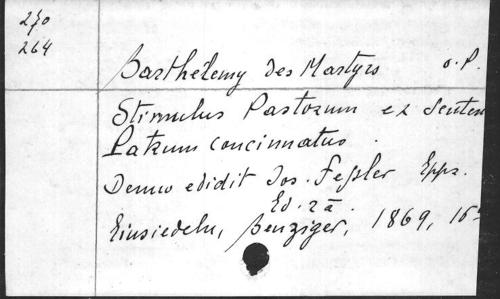 270
264
Barthélemy des Martyrs o.p.
Stimulus Pastorum ex Senten
Patrum concinnatus.
Denuo edidit Jos. Feßler Epps.
Ed. 2ā.
Einsiedeln, Benziger, 1869, 16°